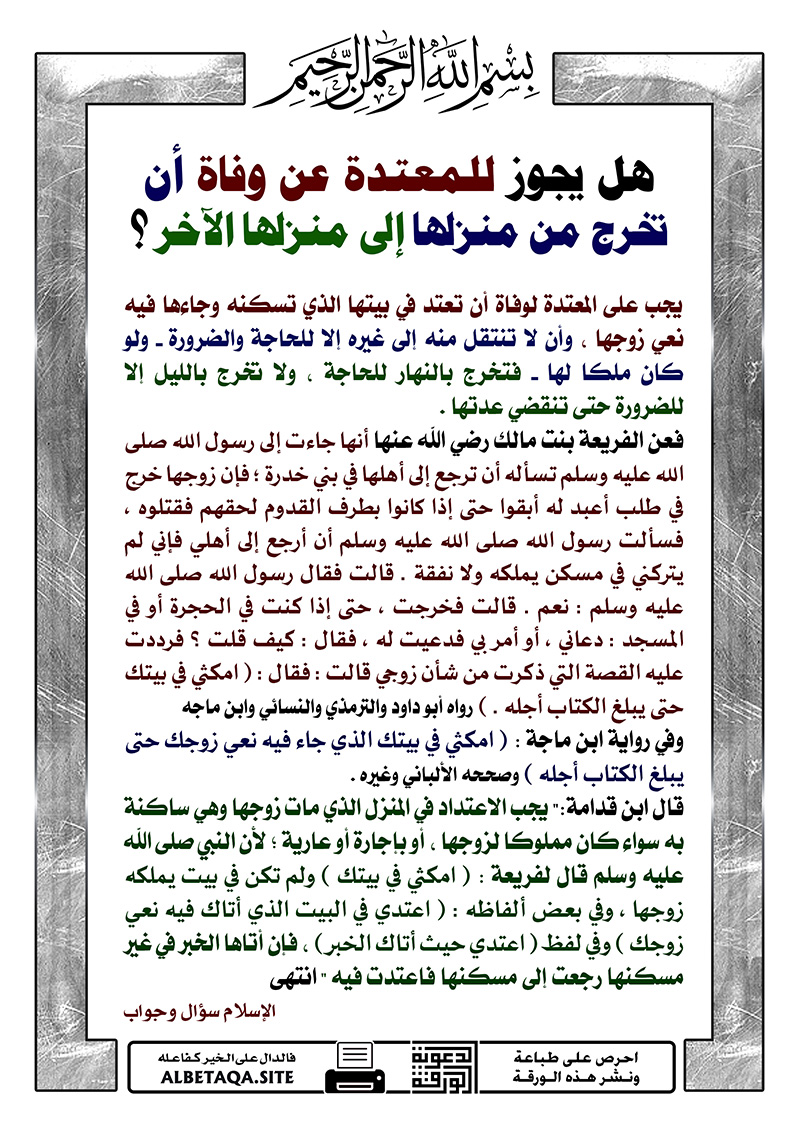 بسم الله الرحمن الرحيم
هل يجوز للمعتدة عن وفاة أن
تخرج من منزلها إلى منزلها الآخر ؟
يجب على المعتدة لوفاة أن تعتد في بيتها الذي تسكنه وجاءها فيه
نعي زوجها ، وأن لا تنتقل منه إلى غيره إلا للحاجة والضرورة ـ ولو
كان ملكا لها ـ فتخرج بالنهار للحاجة ، ولا تخرج بالليل إلا
للضرورة حتى تنقضي عدتها .
فعن الفريعة بنت مالك رضي الله عنها أنها جاءت إلى رسول الله صلى
الله عليه وسلم تسأله أن ترجع إلى أهلها في بني خدرة ؛ فإن زوجها خرج
في طلب أعبد له أبقوا حتى إذا كانوا بطرف القدوم لحقهم فقتلوه ،
فسألت رسول الله صلى الله عليه وسلم أن أرجع إلى أهلي فإني لم
يتركني في مسكن يملكه ولا نفقة . قالت فقال رسول الله صلى الله
عليه وسلم : نعم . قالت فخرجت ، حتى إذا كنت في الحجرة أو في
المسجد : دعاني ، أو أمر بي فدعيت له ، فقال : كيف قلت ؟ فرددت
عليه القصة التي ذكرت من شأن زوجي قالت : فقال : ( امكثي في بيتك
حتى يبلغ الكتاب أجله . ) رواه أبو داود والترمذي والنسائي وابن ماجه
وفي رواية ابن ماجة : ( امكثي في بيتك الذي جاء فيه نعي زوجك حتى
يبلغ الكتاب أجله ) وصححه الألباني وغيره .
قال ابن قدامة:" يجب الاعتداد في المنزل الذي مات زوجها وهي ساكنة
به سواء كان مملوكا لزوجها ، أو بإجارة أو عارية ؛ لأن النبي صلى الله
عليه وسلم قال لفريعة : ( امكثي في بيتك ) ولم تكن في بيت يملكه
زوجها ، وفي بعض ألفاظه : ( اعتدي في البيت الذي أتاك فيه نعي
زوجك ) وفي لفظ ( اعتدي حيث أتاك الخبر) ، فإن أتاها الخبر في غير
مسكنها رجعت إلى مسكنها فاعتدت فيه " انتهى
الإسلام سؤال وجواب
احرص على طباعة
ونشر هذه الورقة
الورقة الدعوية
فالدال على الخير كفاعله
ALBETAQA.SITE